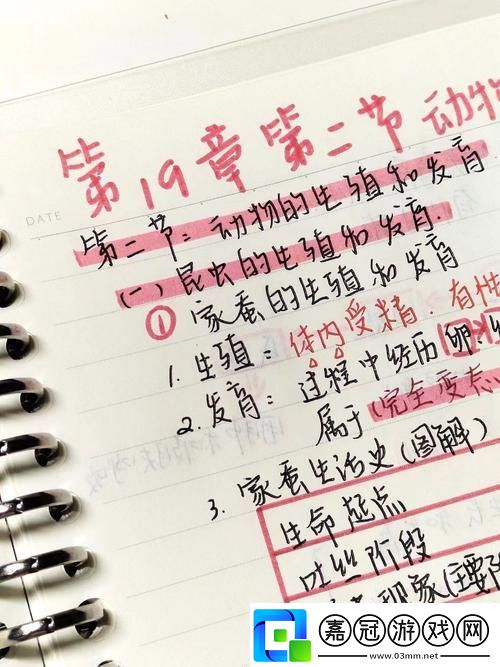 DATE
第19章第二节 动物
第二节:动物的生殖和发育
(一)昆虫的生殖和发育.
① 家蚕的生殖和发育
1. 生殖:体内受精.有性
2. 发育:过程中经历卵、
属于(完全变态
3. 家蚕生活史(图解)
生命起点
吐丝阶段
现象(主要
嘉冠游戏网
www.03mm.net